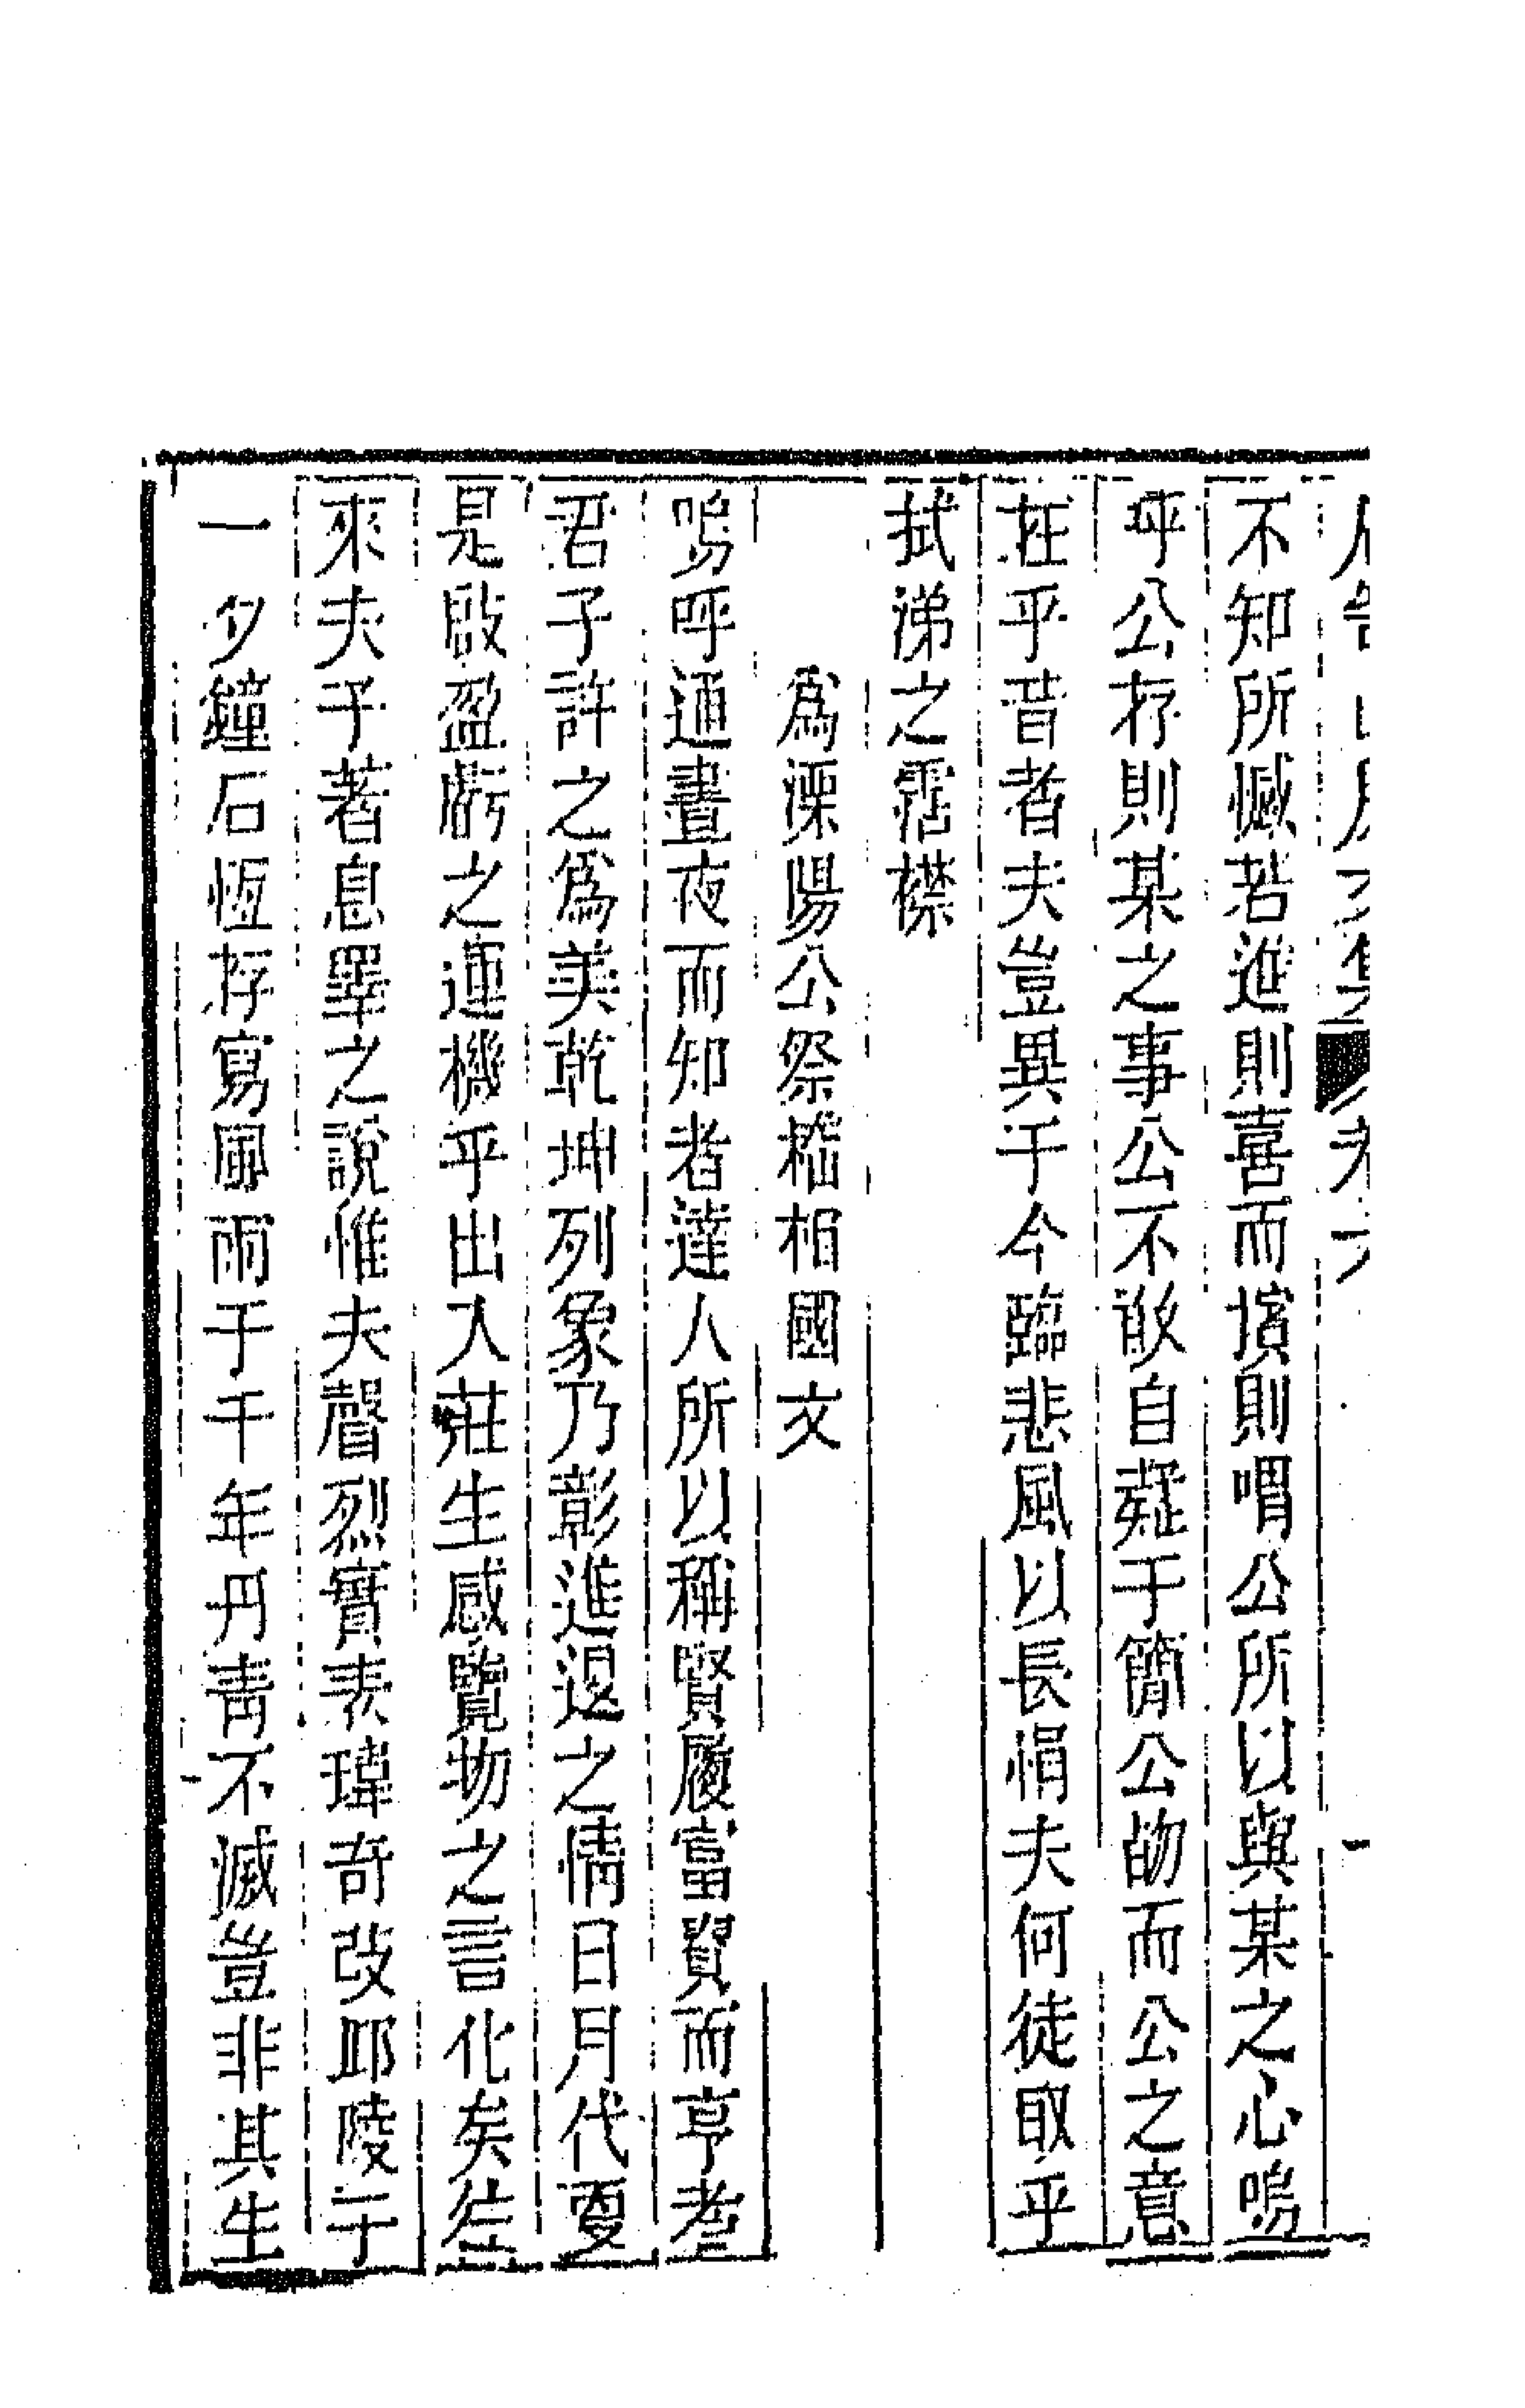 不知所憾若進則喜而擯則喟公所以與某之心嗚
呼公存則某之事公不敢自疑于簡公歿而公之意
在乎昔者夫豈異于今臨悲風以長悁夫何徒取乎
拭涕之霑襟
爲溧陽公祭嵇相國文
嗚呼通晝夜而知者達人所以稱賢履富貴而亨者
君子許之爲美乾坤列象乃彰進退之情日月代更
是啟盈虧之運機乎出入莊生感覽物之言化矣往
來夫子著息睪之說惟夫聲烈實表瑋奇改邱陵于
一夕鐘石恆存寫風雨于千年丹青不滅豈非其生